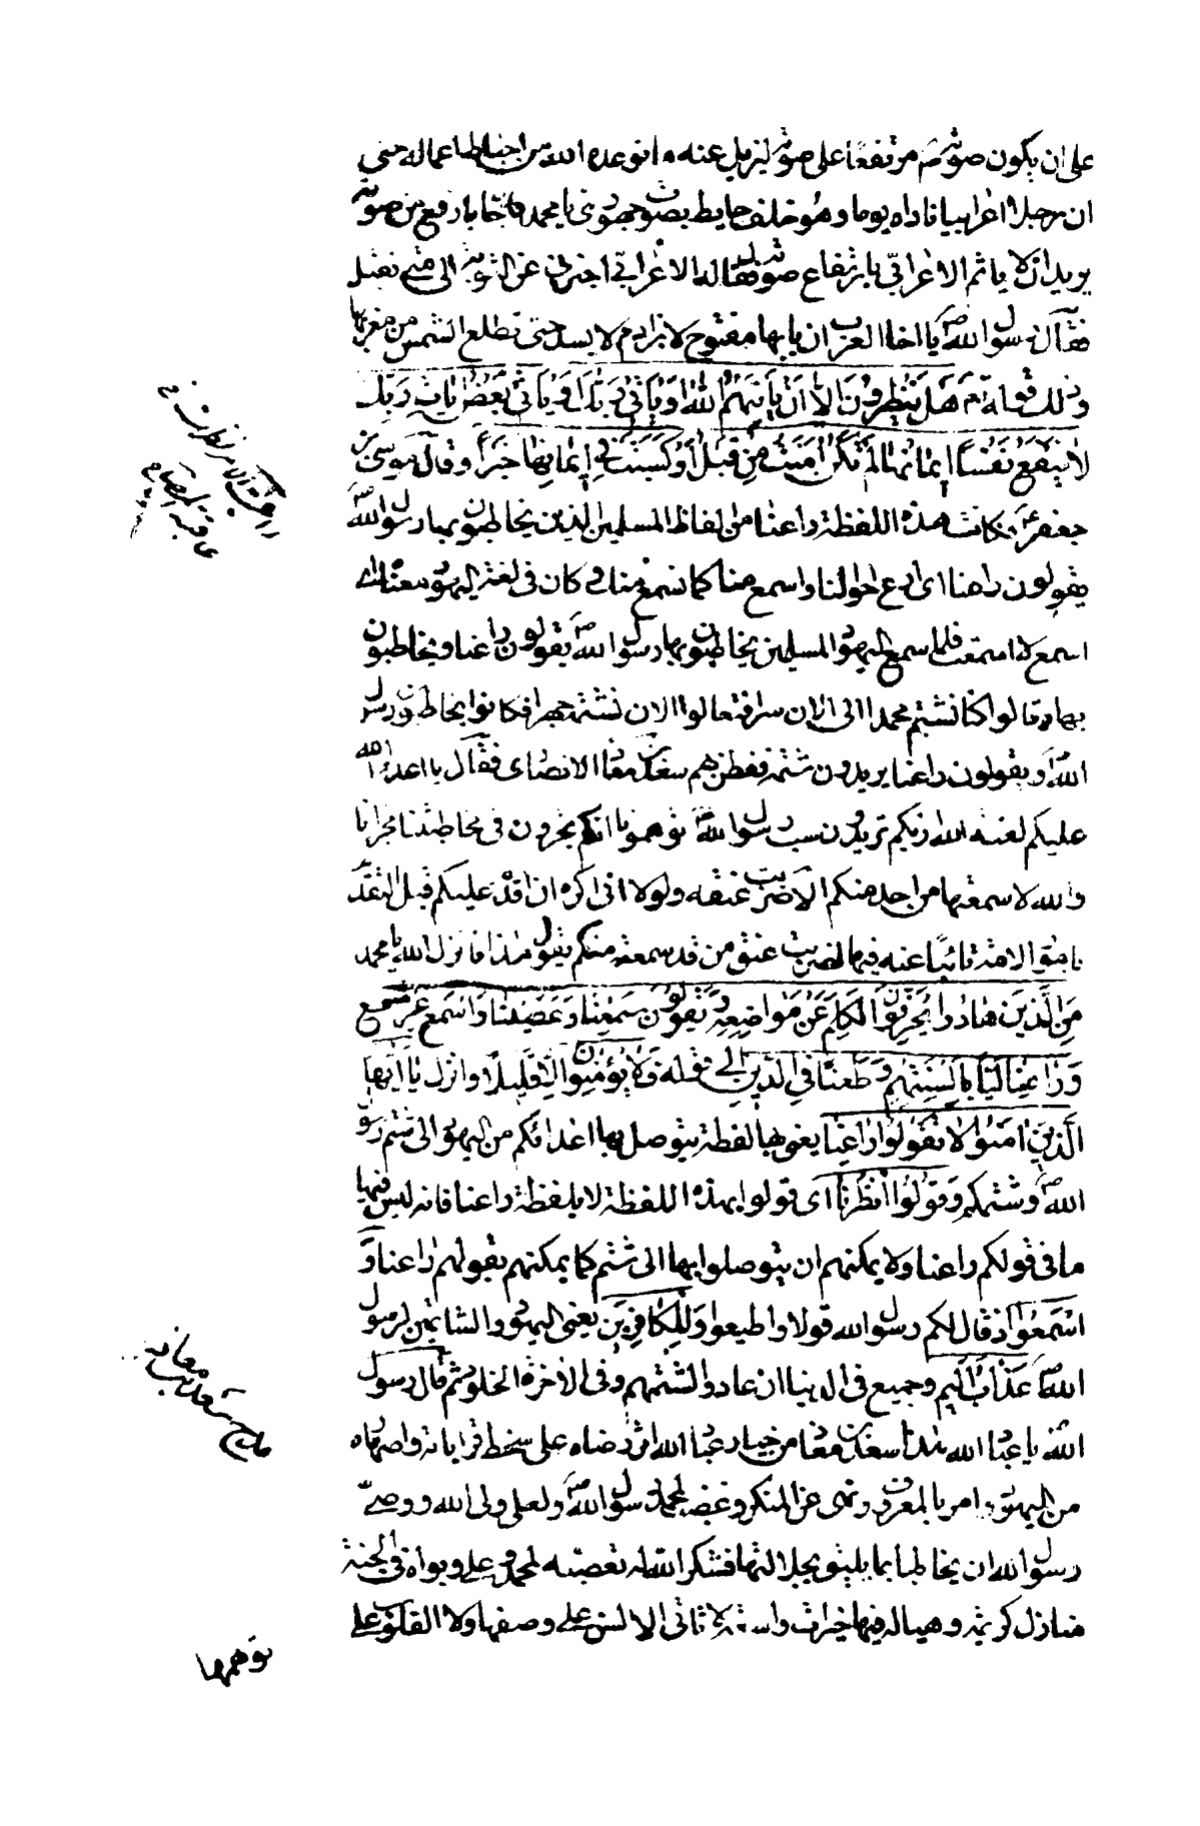 على ان يكون صوته صم مرتفعا على صوته ليزيل عنه ما توعده الله من احباط اعماله حتى
ان رجلا اعرابيا ناداه يوما وهو خلف حايط بصوت جهوري يا محمد فاجابه بارفع من صوته
يريد ان لا ياثم الاعرابي بارتفاع صوته فقال له الاعرابي اخبرني عن التوبة الى متى تقبل
فقال رسول الله ص يا اخا العرب ان بابها مفتوح لابن ادم لا يسد حتى تطلع الشمس من مغربها
وذلك قوله تم هَل يَنْظُرُونَ اِلّا اَنْ يَأتِيَهُمُ اللّٰهُ اَوْ يَأتِيَ رَبُّكَ اَوْ يَأتِيَ بَعْضُ اٰيٰاتِ رَبِّكَ
لا يَنْفَعُ نَفْسًا اِيمانُها لَمْ تَكُنْ اٰمَنَتْ مِنْ قَبْلُ اَوْ كَسَبَتْ فِي اِيمانِها خَيْراً وقال موسى بن
جعفر ع وكانت هذه اللفظة راعنا من الفاظ المسلمين الذين يخاطبون بها رسول الله ص
يقولون راعنا اى ارع احوالنا واسمع منا كما نسمع منك وكان فى لغة اليهود معناه
اسمع لا اسمعت فلما سمع اليهود المسلمين يخاطبون بها رسول الله ص يقولون راعنا ويخاطبون
بها وقالوا كنا نشتم محمدا الى الان سرا فتعالوا الان نشتمه جهرا فكانوا يخاطبون رسول
الله ص ويقولون راعنا يريدون شتمه ففطن بهم سعد بن معاذ الانصارى فقال يا اعداء الله
عليكم لعنة الله اريكم تريدون سب رسول الله ص توهمونا انكم تجرون فى مخاطبته مجرانا
والله لا سمعتها من احد منكم الا ضربت عنقه ولولا انى اكره ان اقدم عليكم قبل التقدم
لضربت عنق من قد سمعته منكم يقول هذا فانزل الله يا محمد
مِنَ الَّذينَ هادُوا يُحَرِّفُونَ الْكَلِمَ عَنْ مَواضِعِهِ وَيَقُولُونَ سَمِعْنا وَعَصَيْنا وَاسْمَعْ غَيْرَ مُسْمَعٍ
وَراعِنا لَيّاً بِاَلْسِنَتِهِمْ وَطَعْنًا فِي الدّينِ الى قوله فَلا يُؤْمِنُونَ اِلّا قَليلاً وانزل يا اَيُّهَا
الَّذينَ اٰمَنُوا لا تَقُولُوا راعِنا يعنى بها لفظة يتوصل بها اعدائكم من اليهود الى شتم رسول
الله ص وشتمكم وَقُولُوا انْظُرْنا اى قولوا بهذه اللفظة لا بلفظة راعنا فانه ليس فيها
ما فى قولكم راعنا ولا يمكنهم ان يتوصلوا بها الى شتم كما يمكنهم بقولهم راعنا وَ
اسْمَعُوا اذ قال لكم رسول الله قولا واطيعوا وَلِلْكافِرينَ يعنى اليهود الشاتمين لرسول
الله ص عَذابٌ اَليم وجيع فى الدنيا ان عادوا لشتمهم وفى الاخرة الخلود ثم قال رسول
الله يا عباد الله هذا سعد بن معاذ من خيار عباد الله اثر رضاه على سخط قراباته واصهاره
من اليهود امر بالمعروف ونهى عن المنكر وغضب لمحمد رسول الله ص ولعلى ولى الله ووصى
رسول الله ان يخاطبا بما لا يليق بجلالتهما فشكر الله له تعصبه لمحمد وعلى وبواه فى الجنة
منازل كريمة وهيا له فيها خيرات واسعة لا تاتى الالسن على وصفها ولا القلوب على
توهمها
مدح سعد بن معاذ